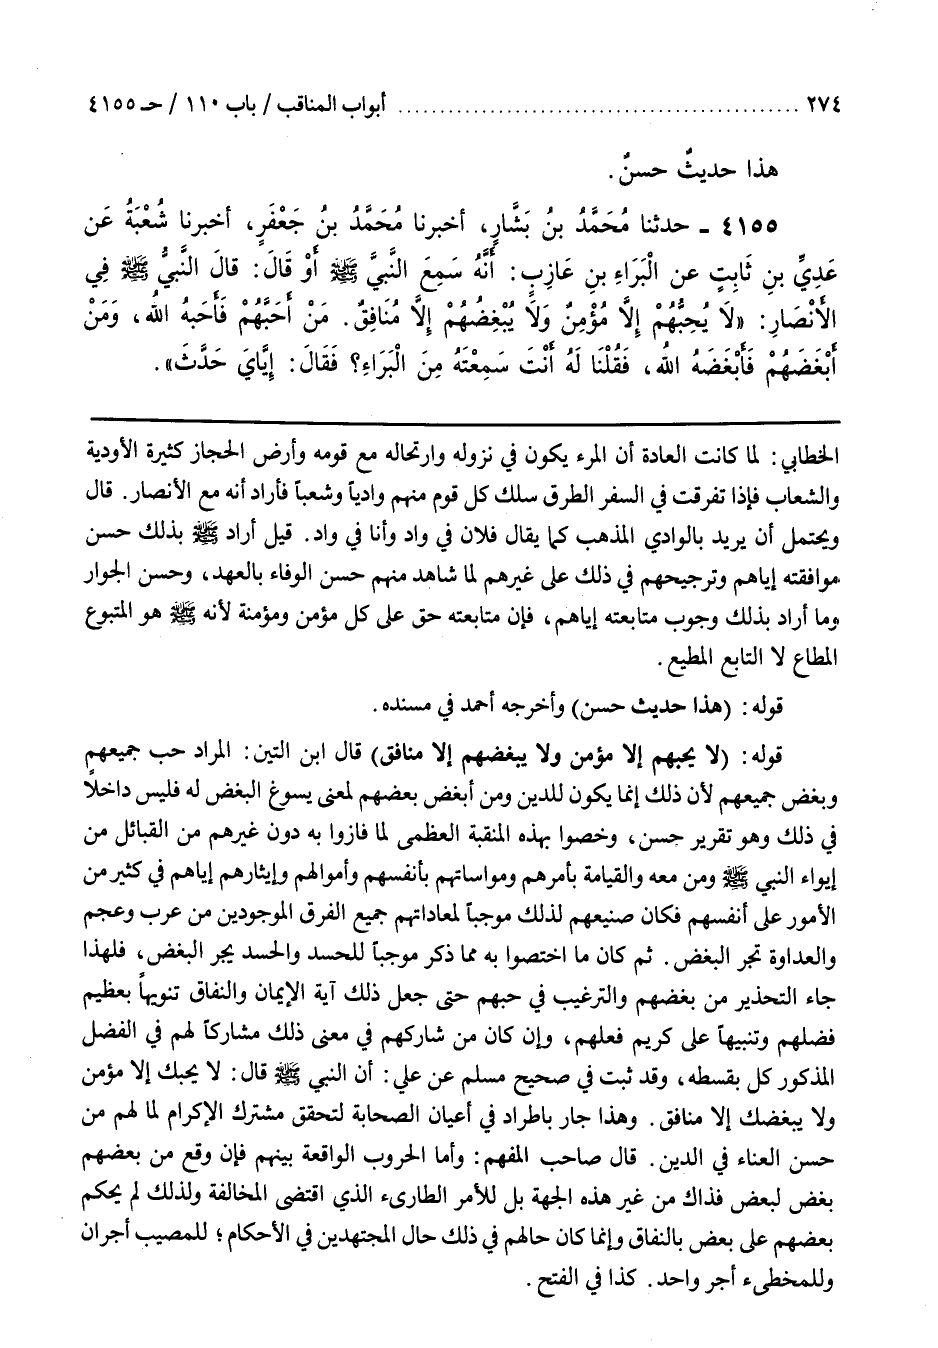 ٢٧٤ ................................................ أبواب المناقب / باب ١١٠ / حـ ٤١٥٥
هذا حديثٌ حسنٌ.
٤١٥٥ ـ حدثنا مُحَمَّدُ بنُ بَشَّارٍ، أخبرنا مُحَمَّدُ بنُ جَعْفَرٍ، أخبرنا شُعْبَةُ عَن
عَدِيِّ بنِ ثَابِتٍ عن الْبَرَاءِ بنِ عَازِبٍ: أَنَّهُ سَمِعَ النَّبيَّ ﷺ أَوْ قَالَ: قالَ النَّبيُّ ﷺ فِي
الأَنْصَارِ: «لَا يُحِبُّهُمْ إِلَّا مُؤْمِنٌ وَلَا يُبْغِضُهُمْ إِلَّا مُنَافِقٌ. مَنْ أَحَبَّهُمْ فَأَحَبهُ اللهُ، وَمَنْ
أَبْغَضَهُمْ فَأَبْغَضَهُ اللهُ، فَقُلْنَا لَهُ أَنْتَ سَمِعْتَهُ مِنَ الْبَرَاءِ؟ فَقَالَ: إِيَّايَ حَدَّثَ».
الخطابي: لما كانت العادة أن المرء يكون في نزوله وارتحاله مع قومه وأرض الحجاز كثيرة الأودية
والشعاب فإذا تفرقت في السفر الطرق سلك كل قوم منهم وادياً وشعباً فأراد أنه مع الأنصار. قال
ويحتمل أن يريد بالوادي المذهب كما يقال فلان في واد وأنا في واد. قيل أراد ﷺ بذلك حسن
موافقته إياهم وترجيحهم في ذلك على غيرهم لما شاهد منهم حسن الوفاء بالعهد، وحسن الجوار
وما أراد بذلك وجوب متابعته إياهم، فإن متابعته حق على كل مؤمن ومؤمنة لأنه ﷺ هو المتبوع
المطاع لا التابع المطيع.
قوله: (هذا حديث حسن) وأخرجه أحمد في مسنده.
قوله: (لا يحبهم إلا مؤمن ولا يبغضهم إلا منافق) قال ابن التين: المراد حب جميعهم
وبغض جميعهم لأن ذلك إنما يكون للدين ومن أبغض بعضهم لمعنى يسوغ البغض له فليس داخلاً
في ذلك وهو تقرير حسن، وخصوا بهذه المنقبة العظمى لما فازوا به دون غيرهم من القبائل من
إيواء النبي ﷺ ومن معه والقيامة بأمرهم ومواساتهم بأنفسهم وأموالهم وإيثارهم إياهم في كثير من
الأمور على أنفسهم فكان صنيعهم لذلك موجباً لمعاداتهم جميع الفرق الموجودين من عرب وعجم
والعداوة تجر البغض. ثم كان ما اختصوا به مما ذكر موجباً للحسد والحسد يجر البغض، فلهذا
جاء التحذير من بغضهم والترغيب في حبهم حتى جعل ذلك آية الإيمان والنفاق تنويهاً بعظيم
فضلهم وتنبيهاً على كريم فعلهم، وإن كان من شاركهم في معنى ذلك مشاركاً لهم في الفضل
المذكور كل بقسطه، وقد ثبت في صحيح مسلم عن علي: أن النبي ﷺ قال: لا يحبك إلا مؤمن
ولا يبغضك إلا منافق. وهذا جار باطراد في أعيان الصحابة لتحقق مشترك الإكرام لما لهم من
حسن العناء في الدين. قال صاحب المفهم: وأما الحروب الواقعة بينهم فإن وقع من بعضهم
بغض لبعض فذاك من غير هذه الجهة بل للأمر الطارىء الذي اقتضى المخالفة ولذلك لم يحكم
بعضهم على بعض بالنفاق وإنما كان حالهم في ذلك حال المجتهدين في الأحكام؛ للمصيب أجران
وللمخطىء أجر واحد. كذا في الفتح.